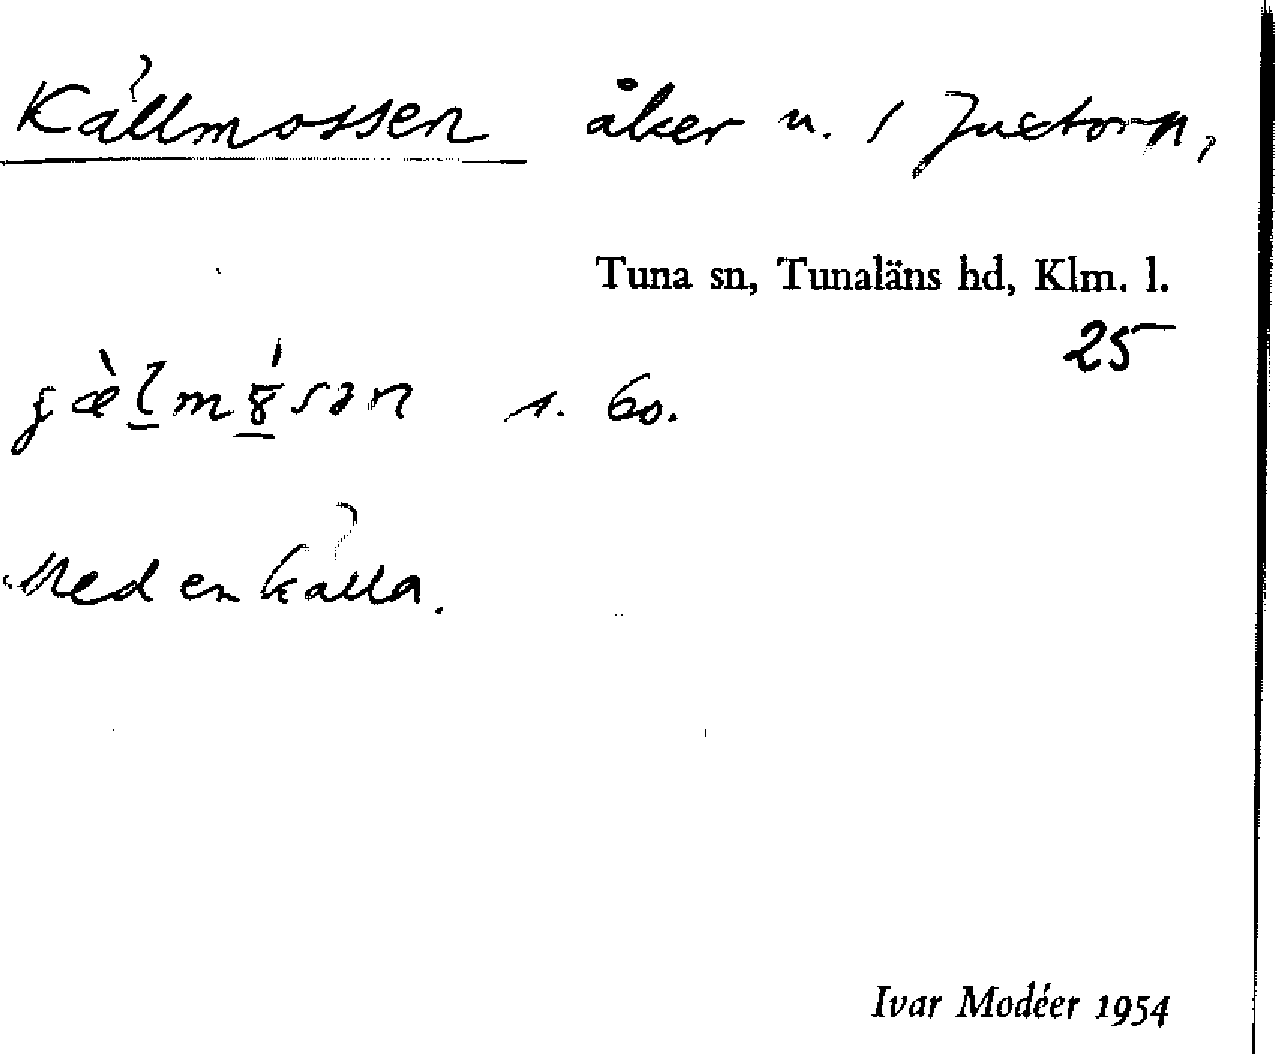 Källmossen åker u. 1 Justorp,
Tuna sn, Tunaläns hd, Klm. l.
25
s. bo.
Med en källa.
Ivar Modéer 1954